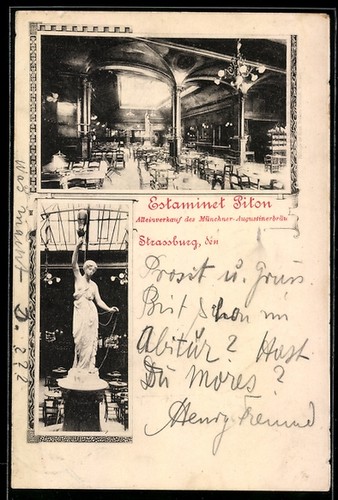 Estaminet Piton
Alleinverkauf des Münchner-Augustinerbräu
Strassburg, den
Prosit u. Gruss
Bist schon im
Abitur? Hast
Du Mores?
Henry Freund
Was macht